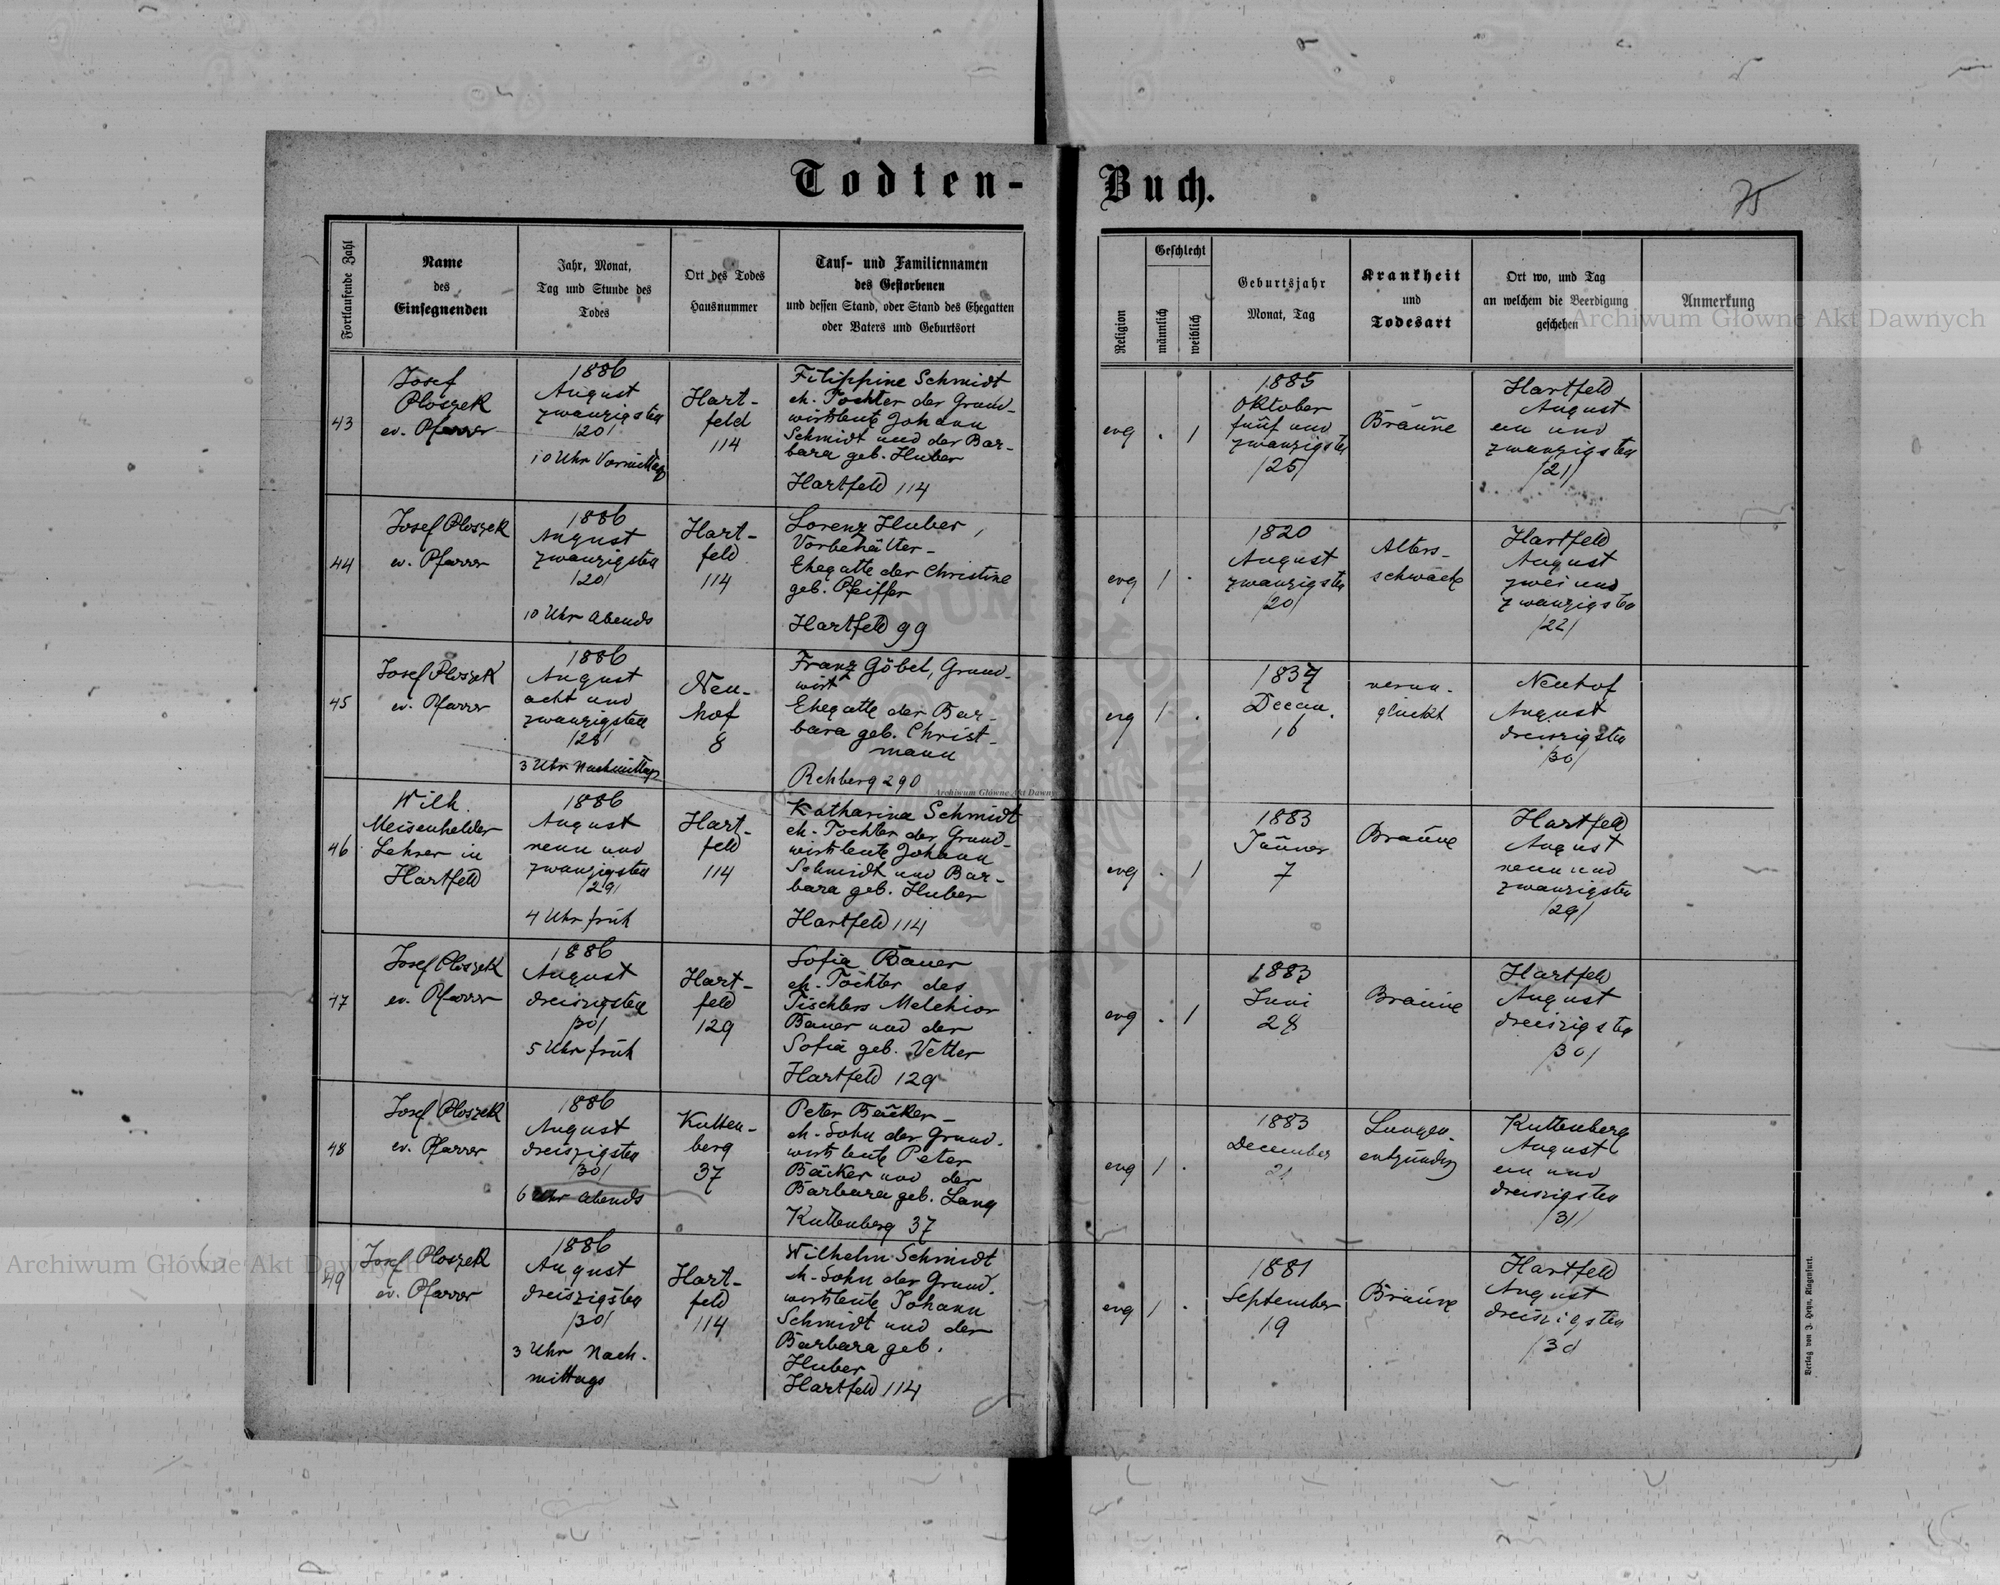 Todten-Buch.
75
Fortlaufende Zahl
Name
des
Einsegnenden
Jahr, Monat,
Tag und Stunde des
Todes
Ort des Todes
Hausnummer
Tauf- und Familiennamen
des Gestorbenen
und dessen Stand, oder Stand des Ehegatten
oder Vaters und Geburtsort
Religion
Geschlecht
männlich
weiblich
Geburtsjahr
Monat, Tag
Krankheit
und
Todesart
Ort wo, und Tag
an welchem die Beerdigung
geschehen
Anmerkung
43
Josef
Ploszek
ev. Pfarrer
1886
August
zwanzigsten
/20/
10 Uhr Vormittag
Hart-
feld
114
Filippine Schmidt
eh. Tochter der Grund-
wirtsleute Johann
Schmidt und der Bar-
bara geb. Huber
Hartfeld 114
evg
.
1
1885
Oktober
fünf und
zwanzigsten
/25/
Bräune
Hartfeld
August
ein und
zwanzigsten
/21/
44
Josef Ploszek
ev. Pfarrer
1886
August
zwanzigsten
/20/
10 Uhr Abends
Hart-
feld
114
Lorenz Huber,
Vorbehälter-
Ehegatte der Christine
geb. Pfeiffer
Hartfeld 99
evg
1
.
1820
August
zwanzigsten
/20/
Alters-
schwäche
Hartfeld
August
zwei und
zwanzigsten
/22/
45
Josef Ploszek
ev. Pfarrer
1886
August
acht und
zwanzigsten
/28/
3 Uhr Nachmittags
Neu-
hof
8
Franz Göbel, Grund-
wirt
Ehegatte der Bar-
bara geb. Christ-
mann
Rehberg 290
evg
1
.
1837
Decem.
16
verun-
glückt
Neuhof
August
dreiszigsten
/30/
46
Wilh.
Meisenhelder
Lehrer in
Hartfeld
1886
August
neun und
zwanzigsten
/29/
4 Uhr früh
Hart-
feld
114
Katharina Schmidt
eh. Tochter der Grund-
wirtsleute Johann
Schmidt und Bar-
bara geb. Huber
Hartfeld 114
evg
.
1
1883
Jänner
7
Bräune
Hartfeld
August
neun und
zwanzigsten
/29/
47
Josef Ploszek
ev. Pfarrer
1886
August
dreiszigsten
/30/
5 Uhr früh
Hart-
feld
129
Sofia Bauer
eh. Tochter des
Tischlers Melchior
Bauer und der
Sofia geb. Vetter
Hartfeld 129
evg
.
1
1883
Juni
28
Bräune
Hartfeld
August
dreiszigsten
/30/
48
Josef Ploszek
ev. Pfarrer
1886
August
dreiszigsten
/30/
6 Uhr Abends
Kutten-
berg
37
Peter Bäcker-
eh. Sohn der Grund-
wirtsleute Peter
Bäcker und der
Barbara geb. Lang
Kuttenberg 37
evg
1
.
1883
December
21
Lungen-
entzündg
Kuttenberg
August
ein und
dreiszigsten
/31/
49
Josef Ploszek
ev. Pfarrer
1886
August
dreiszigsten
/30/
3 Uhr Nach-
mittags
Hart-
feld
114
Wilhelm Schmidt
eh. Sohn der Grund-
wirtsleute Johann
Schmidt und der
Barbara geb.
Huber
Hartfeld 114
evg
1
.
1881
September
19
Bräune
Hartfeld
August
dreiszigsten
/30/
Verlag von J. Heyn, Klagenfurt.
Archiwum Główne Akt Dawnych
Archiwum Główne Akt Dawnych
Archiwum Główne Akt Dawnych